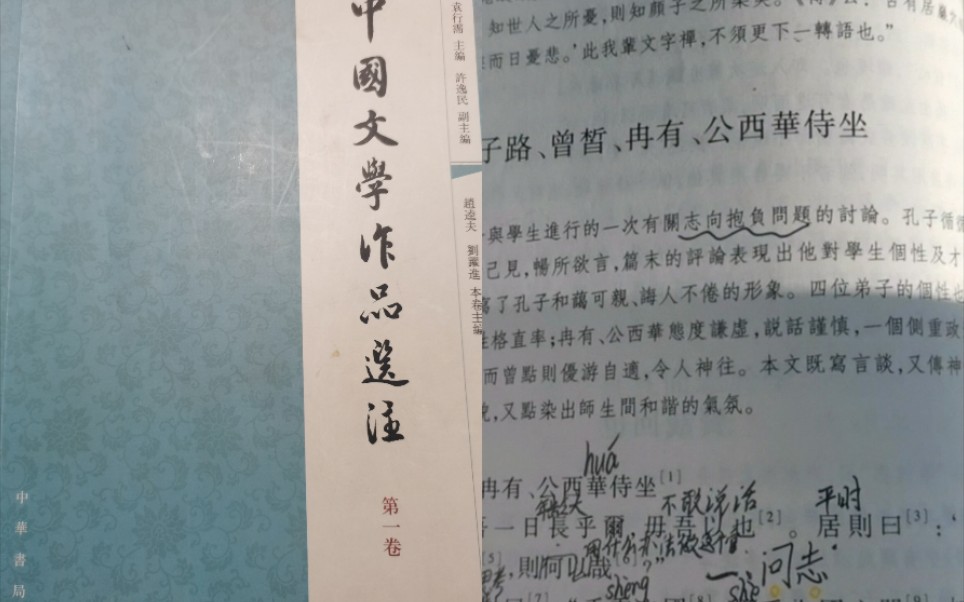 中國文學作品選注
第一卷
袁行霈 主編 許逸民 副主編
趙逵夫 劉躍進 本卷主編
中華書局
知世人之所憂,則知顏子之所樂矣。
而日憂悲。'此我輩文字禪,不須更下一轉語也。”
子路、曾皙、冉有、公西華侍坐
與學生進行的一次有關志向抱負問題的討論。孔子循循
己見,暢所欲言,篇末的評論表現出他對學生個性及才
寫了孔子和藹可親、誨人不倦的形象。四位弟子的個性也
性格直率;冉有、公西華態度謙虛,說話謹慎,一個側重政
而曾點則優游自適,令人神往。本文既寫言談,又傳神
,又點染出師生間和諧的氣氛。
huá
冉有、公西華侍坐[1]
不敢说话 平时
吾一日長乎爾,毋吾以也[2]。居則曰[3]:‘
,則何以哉
问志
shèng
shè